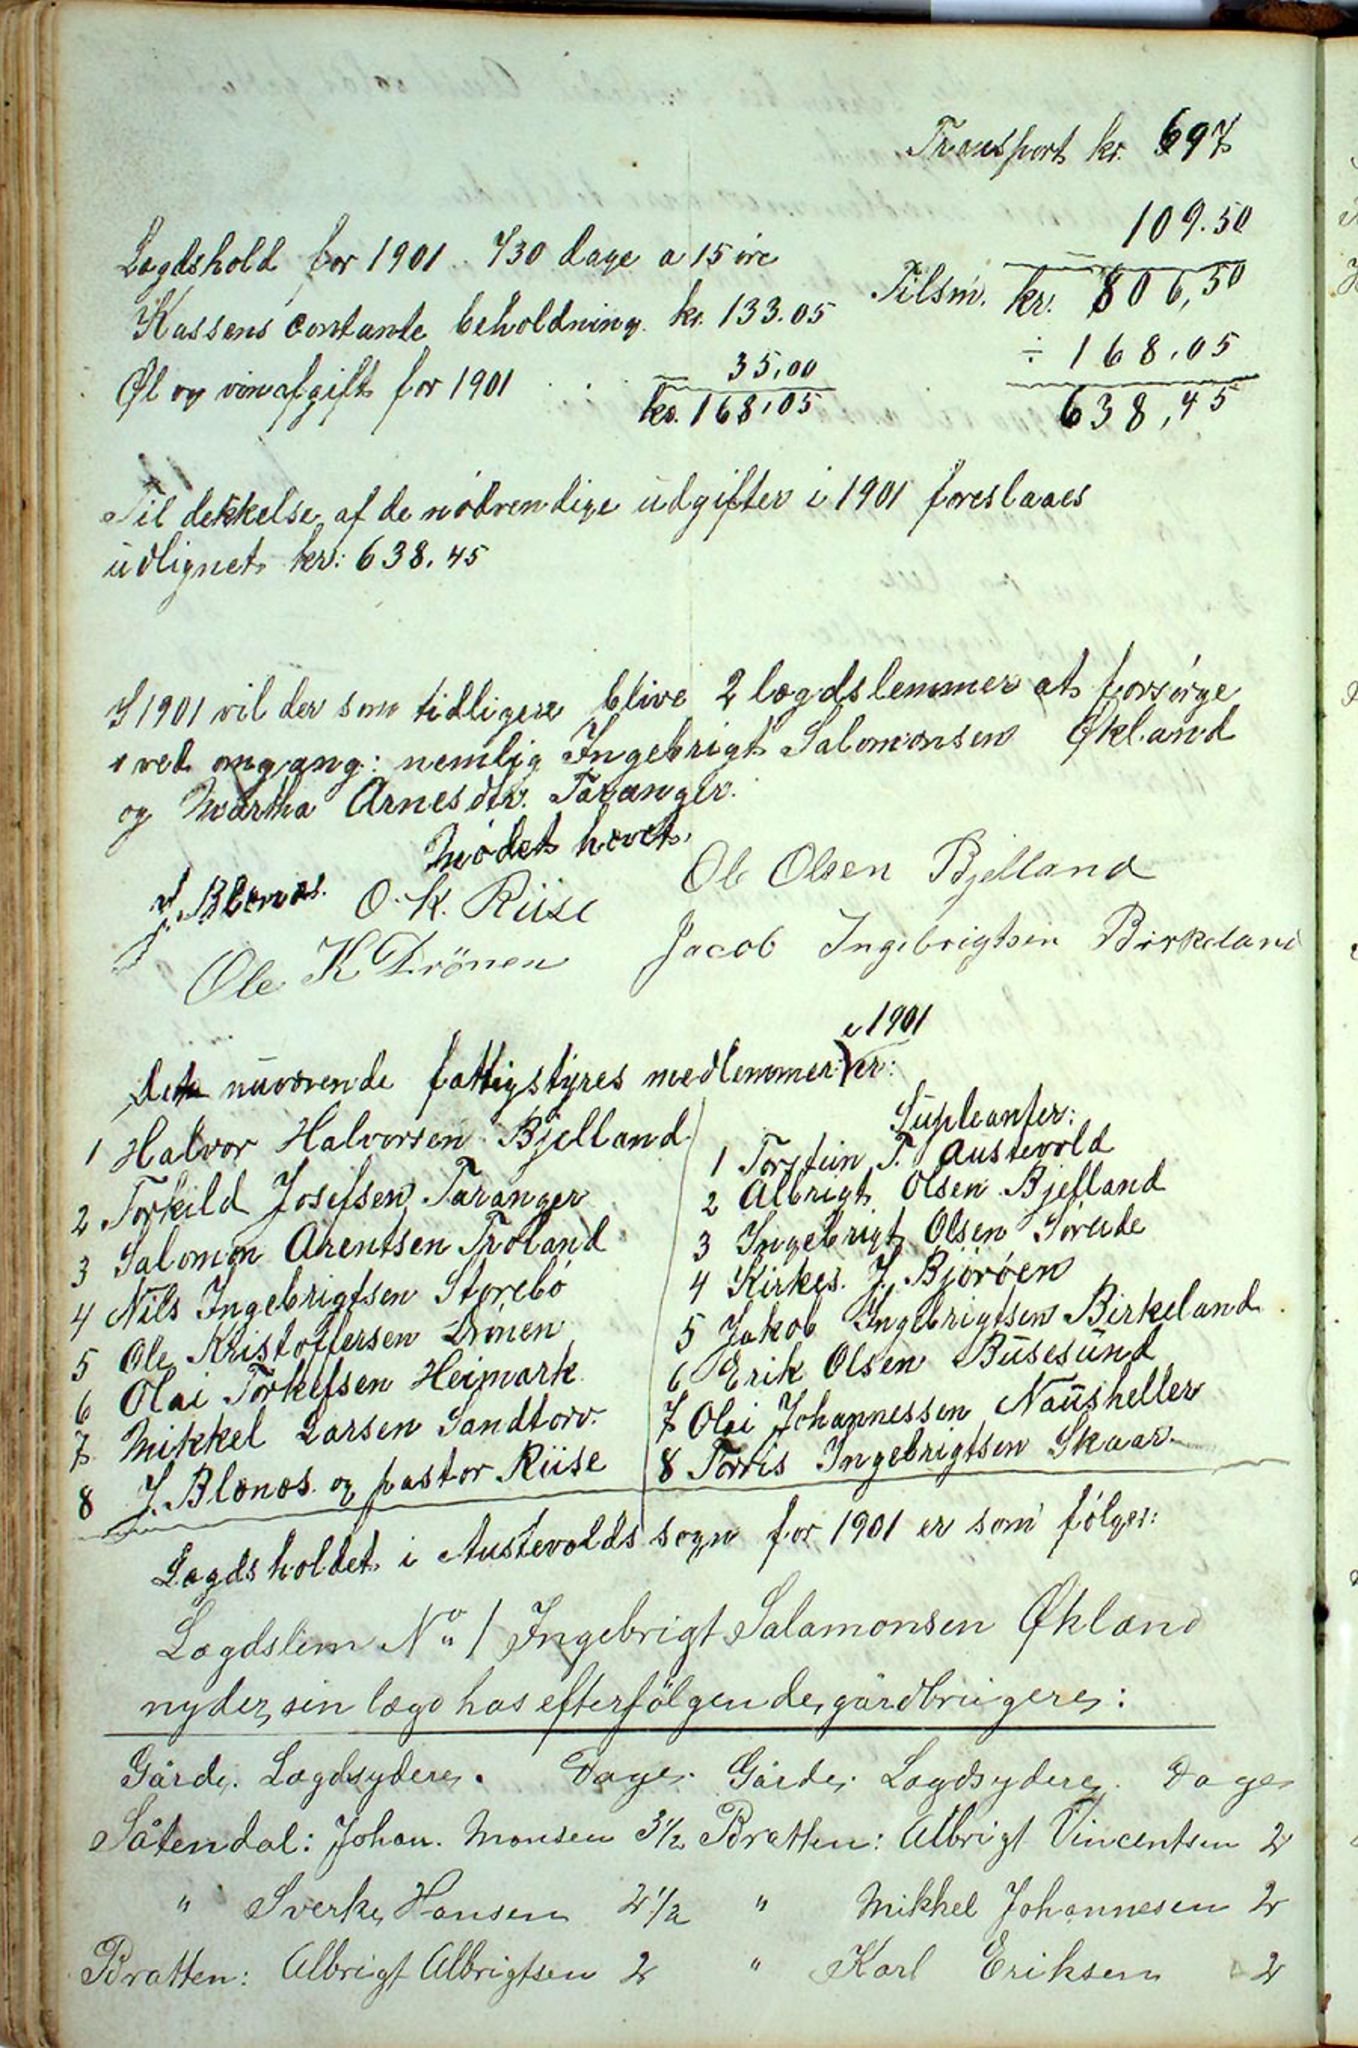 Transport kr. 697
Lægdshold for 1901. 730 dage a 15 øre 109.50
Kassens contante beholdning. kr. 133.05 Tilsm. kr. 806,50
Øl og vinafgift for 1901 . . 35,00 ÷ 168,05
kr. 168,05 638,45
Til dekkelse af de nødvendige udgifter i 1901 foreslaaes
udlignet kr: 638.45
I 1901 vil der som tidligere blive 2 lægdslemmer at forsørge
ved omgang: nemlig Ingebrigt Salomonsen Økland
og Martha Arnesdtr. Taranger.
Mødet hævet.
J. Blænæs. O. K. Riise Ole Olsen Bjelland
Ole K Drönen Jacob Ingebrigtsen Birkeland
i 1901
Det nuværende fattigstyres medlemmer er:
Supleanter:
1 Halvor Halvorsen Bjelland 1 Torstein T. Austevold
2 Torkild Josefsen Taranger 2 Albrigt Olsen Bjelland
3 Salomon Arentsen Troland 3 Ingebrigt Olsen Sørude
4 Nils Ingebrigtsen Storebø 4 Kirkes. J. Bjørøen
5 Ole Kristoffersen Drönen 5 Jakob Ingebrigtsen Birkeland
6 Olai Torkelsen Heimark 6 Erik Olsen Busesund
7 Mikkel Larsen Sandtorv. 7 Olai Johannessen Naustheller
8 J. Blænæs og pastor Riise 8 Torris Ingebrigtsen Skaar
Lægdsholdet i Austevolds sogn for 1901 er som følger:
Lægdslem No 1 Ingebrigt Salamonsen Økland
nyder sin lægd hos efterfölgende gårdbrugere:
Gårde. Lægdsydere. Dage. Gårde. Lægdsydere. Dage
Såtendal: Johan. Monsen 3 1/2 Bratten: Albrigt Vincentsen 2
" Sverke Hansen 2 1/2 " Mikkel Johannesen 2
Bratten: Albrigt Albrigtsen 2 " Karl Eriksen 2